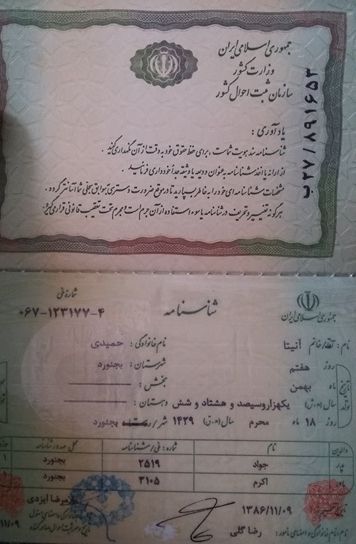 جمهوری اسلامی ایران
وزارت کشور
سازمان ثبت احوال کشور
ب۲۷/۸۹۱۶۵۳
یادآوری:
شناسنامه سند هویت شماست، برای حفظ حقوق خود به دقت از آن نگهداری کنید.
از ارائه یا اخذ شناسنامه به عنوان ودیعه یا وثیقه جداً خودداری فرمائید.
مشخصات شناسنامه‌ای خود را به خاطر بسپارید تا در موقع ضرورت دسترسی به سوابق سجلی شما آسانتر گردد.
هرگونه تغییر و تحریف در شناسنامه یا سوء استفاده از آن جرم است و مجرم تحت تعقیب قانونی قرار می‌گیرد.
جمهوری اسلامی ایران
شناسنامه
شماره ملی
۰۶۷-۱۲۳۱۷۷-۴
نام: آقا/خانم آنیتا
نام خانوادگی: حمیدی
روز هفتم
شهرستان: بجنورد
ماه بهمن
بخش:
سال (ه‍.ش) یکهزاروسیصد و هشتاد و شش
دهستان:
روز ۱۸ ماه محرم سال (ه‍.ق) ۱۴۲۹
شهر/ بجنورد
والدین نام شماره: ملی/شناسنامه محل صدور شناسنامه
پدر جواد ۲۵۱۹ بجنورد ۱
مادر اکرم ۳۱۰۵ بجنورد
۱۳۸۶/۱۱/۰۹
رضا گلی
علیرضا ایزدی
۱۱/۰۹